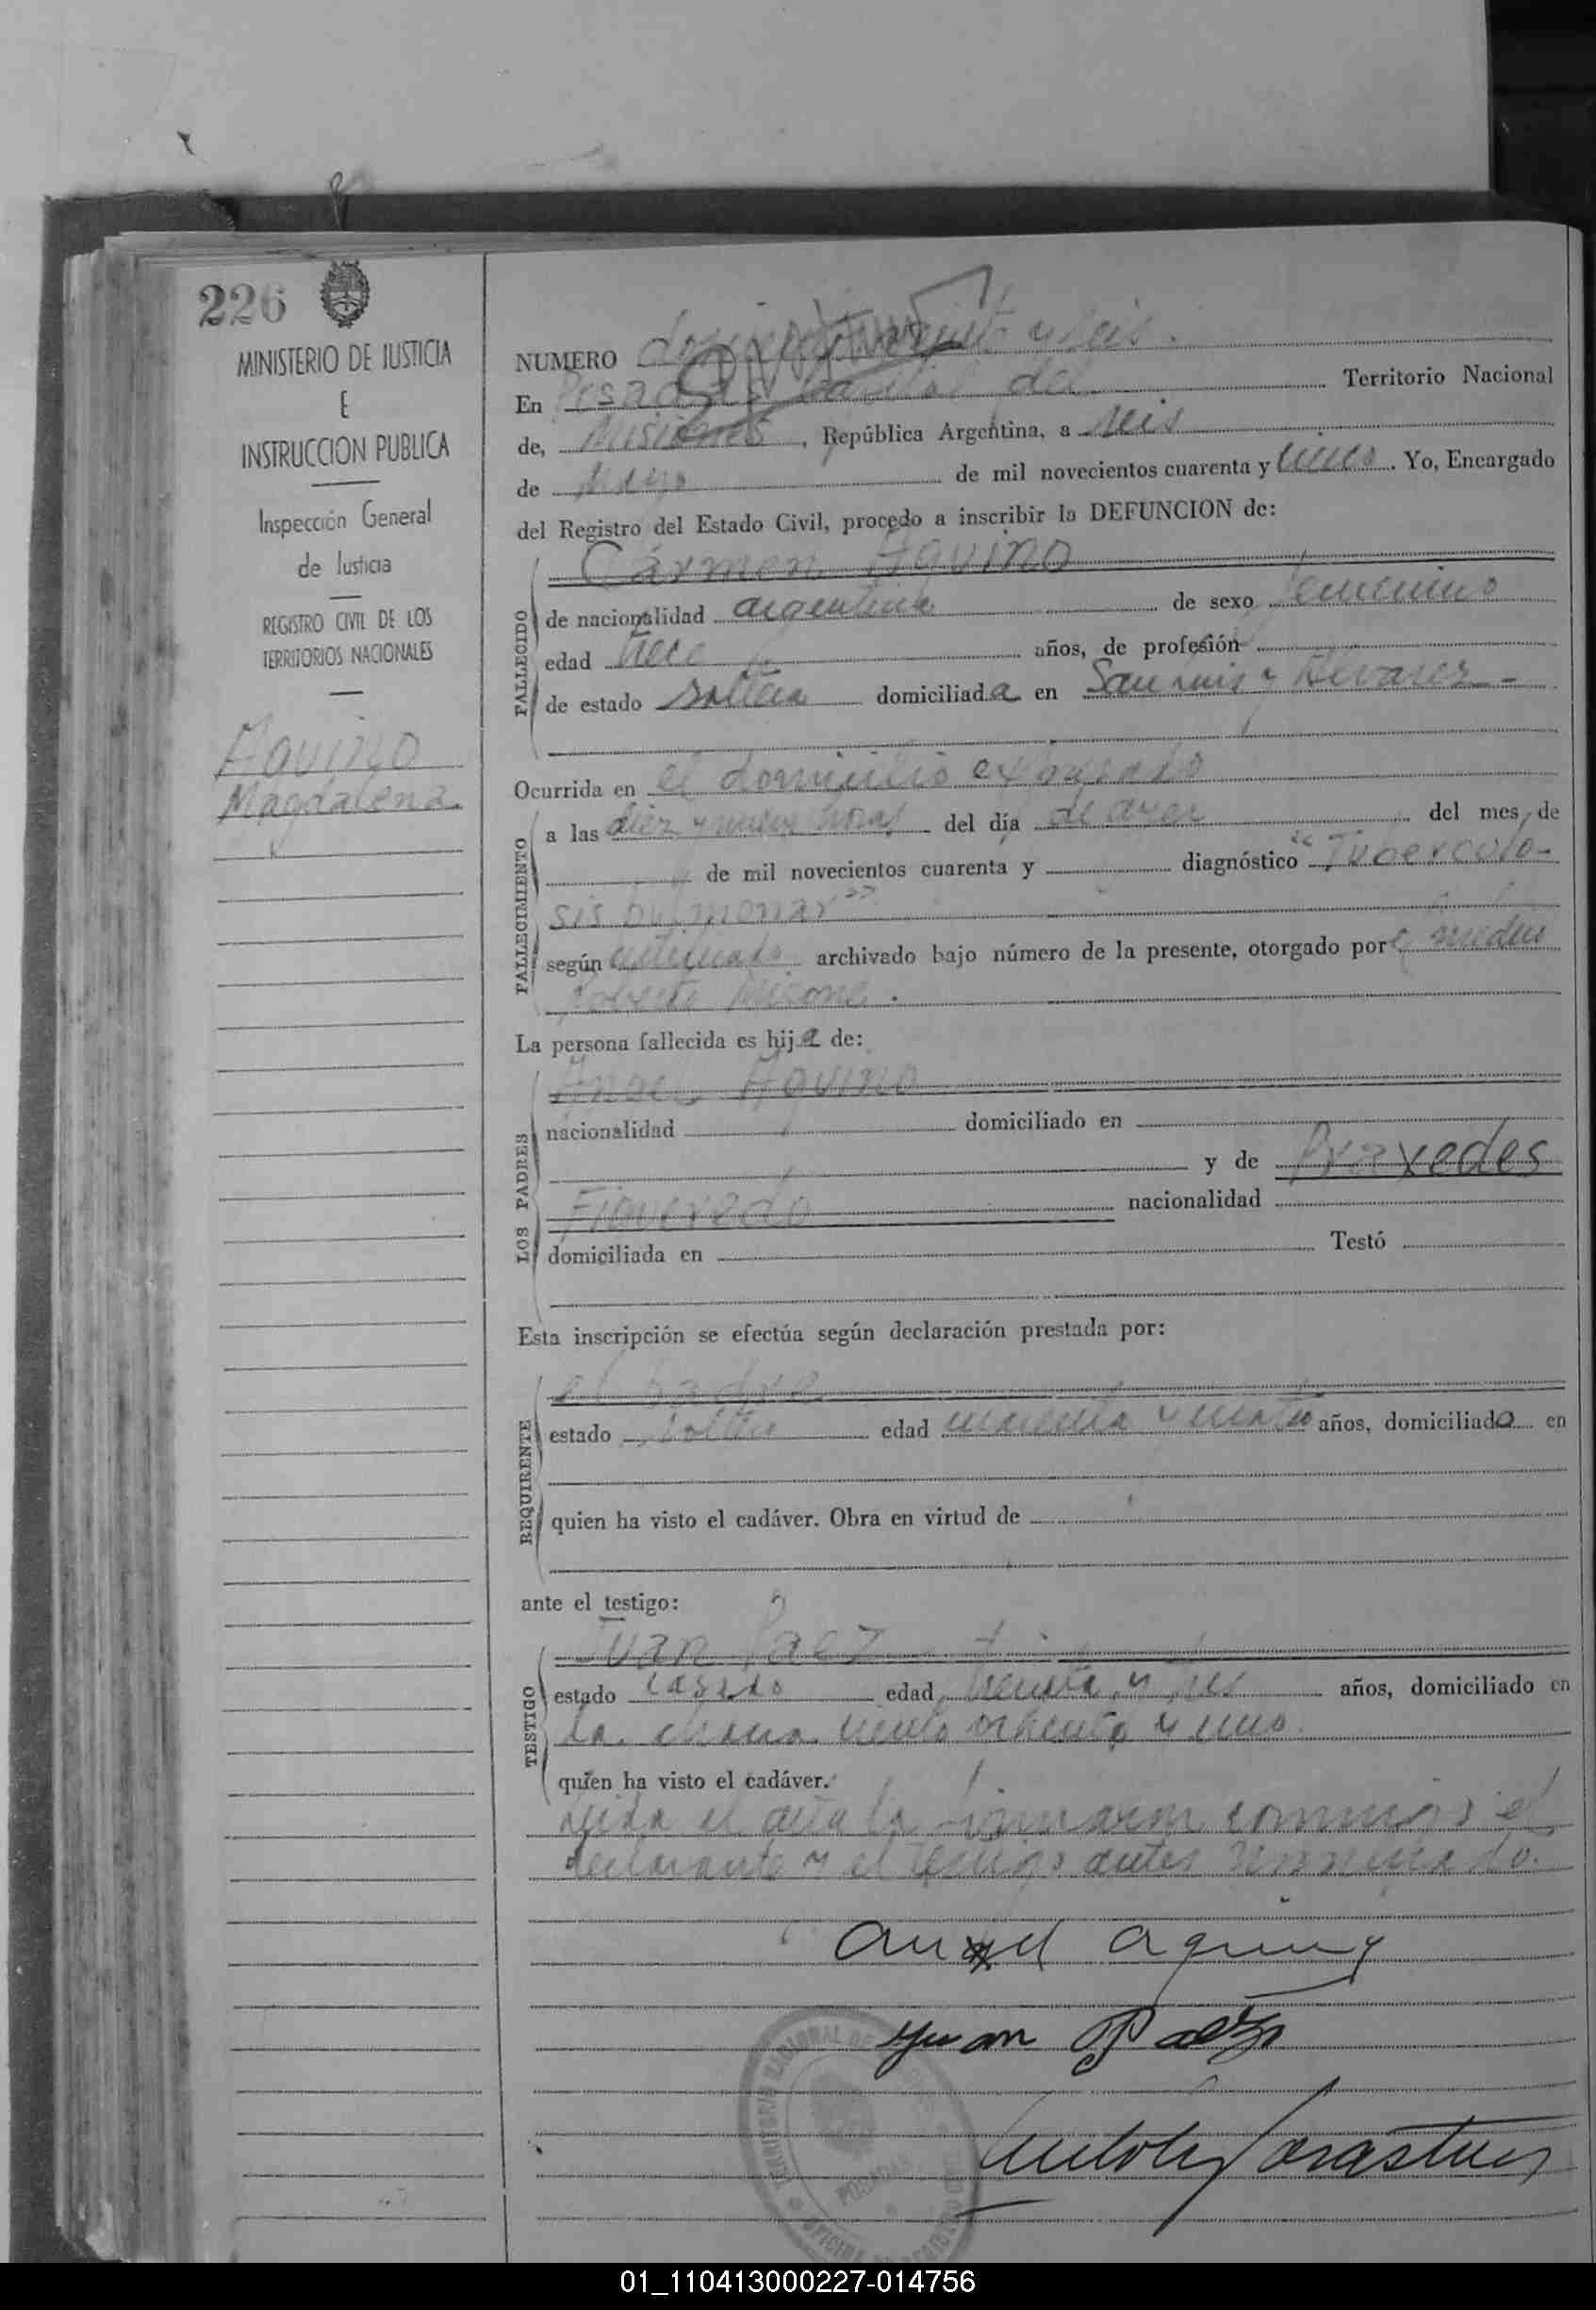 226
MINISTERIO DE JUSTICIA
E
INSTRUCCION PUBLICA
Inspección General
de Justicia
REGISTRO CIVIL DE LOS
TERRITORIOS NACIONALES
Aquino
Magdalena
NUMERO doscientos veinte y seis.
En Posadas Capital del Territorio Nacional
de, Misiones, República Argentina, a seis
de Mayo de mil novecientos cuarenta y cinco. Yo, Encargado
del Registro del Estado Civil, procedo a inscribir la DEFUNCION de:
FALLECIDO
Cármen Aquino
de nacionalidad argentina de sexo femenino
edad trece años, de profesión
de estado soltera domiciliada en San Luis y Alvarez-
Ocurrida en el domicilio expresado
FALLECIMIENTO
a las diez y nueve horas del día de ayer del mes de
de mil novecientos cuarenta y diagnóstico "Tuberculo-
sis pulmonar"
según certificado archivado bajo número de la presente, otorgado por el médico
Roberto
La persona fallecida es hija de:
LOS PADRES
Angel Aquino
nacionalidad domiciliado en
y de Praxedes
Figueredo nacionalidad
domiciliada en Testó
Esta inscripción se efectúa según declaración prestada por:
REQUIRENTE
el padre
estado soltero edad cuarenta y cuatro años, domiciliado en
quien ha visto el cadáver. Obra en virtud de
ante el testigo:
TESTIGO
Juan Paez
estado casado edad treinta y tres años, domiciliado en
la chacra ciento ochenta y uno
quien ha visto el cadáver.
Leida el acta la firmaron conmigo el
declarante y el testigo antes nominado.
Angel Aquino
Juan Paez
POSADAS
01_110413000227-014756